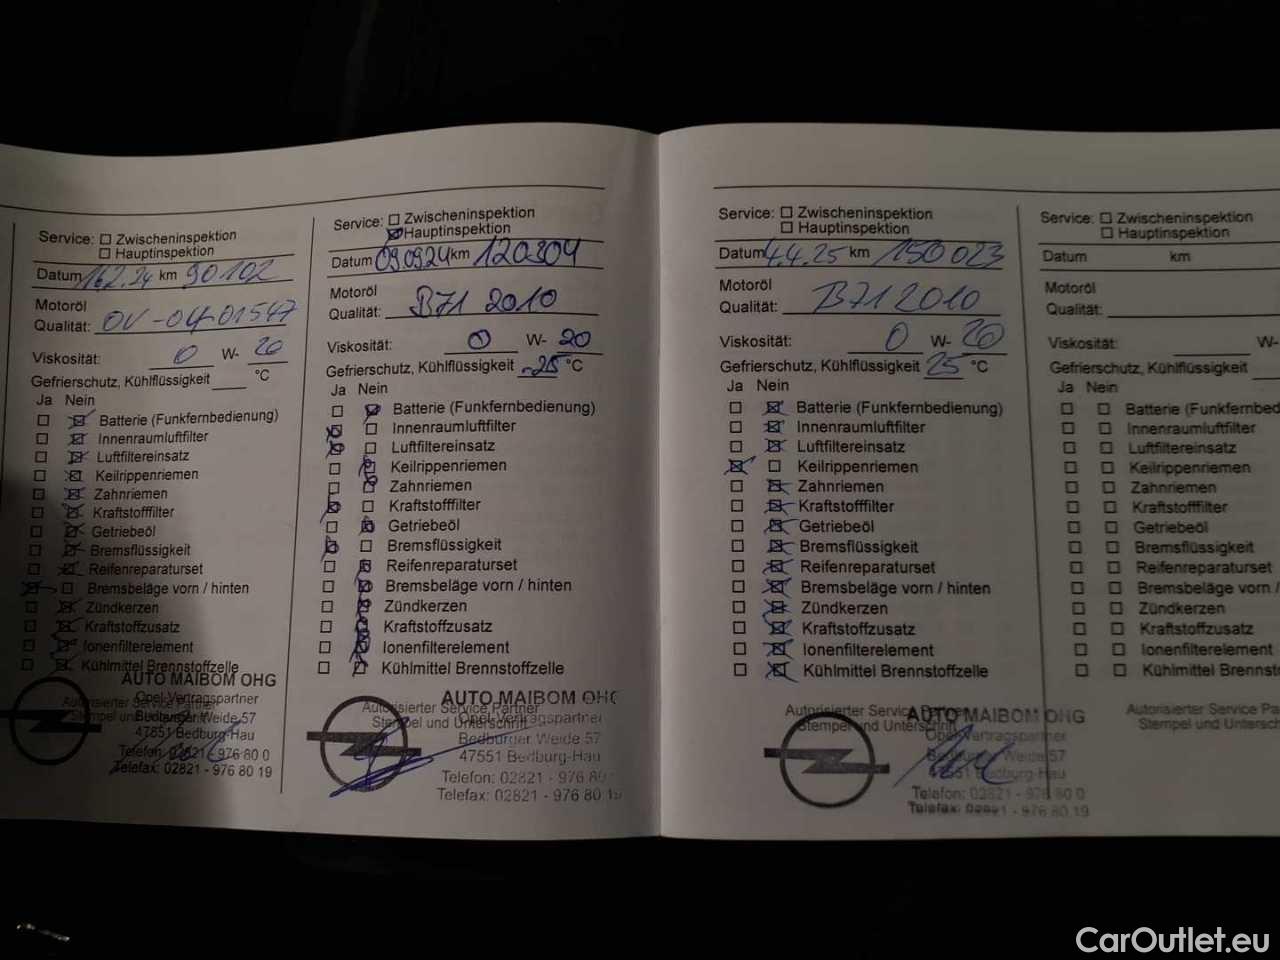 Service: Zwischeninspektion
Hauptinspektion
Datum 16.2.24 km 90102
Motoröl
Qualität: OV-0401547
Viskosität: 0 W- 20
Gefrierschutz, Kühlflüssigkeit °C
Ja Nein
Batterie (Funkfernbedienung)
Innenraumluftfilter
Luftfiltereinsatz
Keilrippenriemen
Zahnriemen
Kraftstofffilter
Getriebeöl
Bremsflüssigkeit
Reifenreparaturset
Bremsbeläge vorn / hinten
Zündkerzen
Kraftstoffzusatz
Ionenfilterelement
Kühlmittel Brennstoffzelle
AUTO MAIBOM OHG
Autorisierter Service Partner
Opel-Vertragspartner
Stempel und Unterschrift
Bedburger Weide 57
47551 Bedburg-Hau
Telefon: 02821 - 976 80 0
Telefax: 02821 - 976 80 19
Service: Zwischeninspektion
Hauptinspektion
Datum 09.09.24 km 120304
Motoröl
Qualität: B71 2010
Viskosität: 0 W- 20
Gefrierschutz, Kühlflüssigkeit -25 °C
Ja Nein
Batterie (Funkfernbedienung)
Innenraumluftfilter
Luftfiltereinsatz
Keilrippenriemen
Zahnriemen
Kraftstofffilter
Getriebeöl
Bremsflüssigkeit
Reifenreparaturset
Bremsbeläge vorn / hinten
Zündkerzen
Kraftstoffzusatz
Ionenfilterelement
Kühlmittel Brennstoffzelle
AUTO MAIBOM OHG
Autorisierter Service Partner
Opel-Vertragspartner
Stempel und Unterschrift
Bedburger Weide 57
47551 Bedburg-Hau
Telefon: 02821 - 976 80
Telefax: 02821 - 976 80 19
Service: Zwischeninspektion
Hauptinspektion
Datum 4.4.25 km 150023
Motoröl
Qualität: B71 2010
Viskosität: 0 W- 20
Gefrierschutz, Kühlflüssigkeit 25 °C
Ja Nein
Batterie (Funkfernbedienung)
Innenraumluftfilter
Luftfiltereinsatz
Keilrippenriemen
Zahnriemen
Kraftstofffilter
Getriebeöl
Bremsflüssigkeit
Reifenreparaturset
Bremsbeläge vorn / hinten
Zündkerzen
Kraftstoffzusatz
Ionenfilterelement
Kühlmittel Brennstoffzelle
Autorisierter Service Partner
AUTO MAIBOM OHG
Stempel und Unterschrift
Opel-Vertragspartner
Bedburger Weide 57
47551 Bedburg-Hau
Telefon: 02821 - 976 80 0
Telefax: 02821 - 976 80 19
Service: Zwischeninspektion
Hauptinspektion
Datum km
Motoröl
Qualität:
Viskosität: W-
Gefrierschutz, Kühlflüssigkeit
Ja Nein
Batterie (Funkfernbed
Innenraumluftfilter
Luftfiltereinsatz
Keilrippenriemen
Zahnriemen
Kraftstofffilter
Getriebeöl
Bremsflüssigkeit
Reifenreparaturset
Bremsbeläge vorn /
Zündkerzen
Kraftstoffzusatz
Ionenfilterelement
Kühlmittel Brennst
Autorisierter Service Pa
Stempel und Untersch
CarOutlet.eu